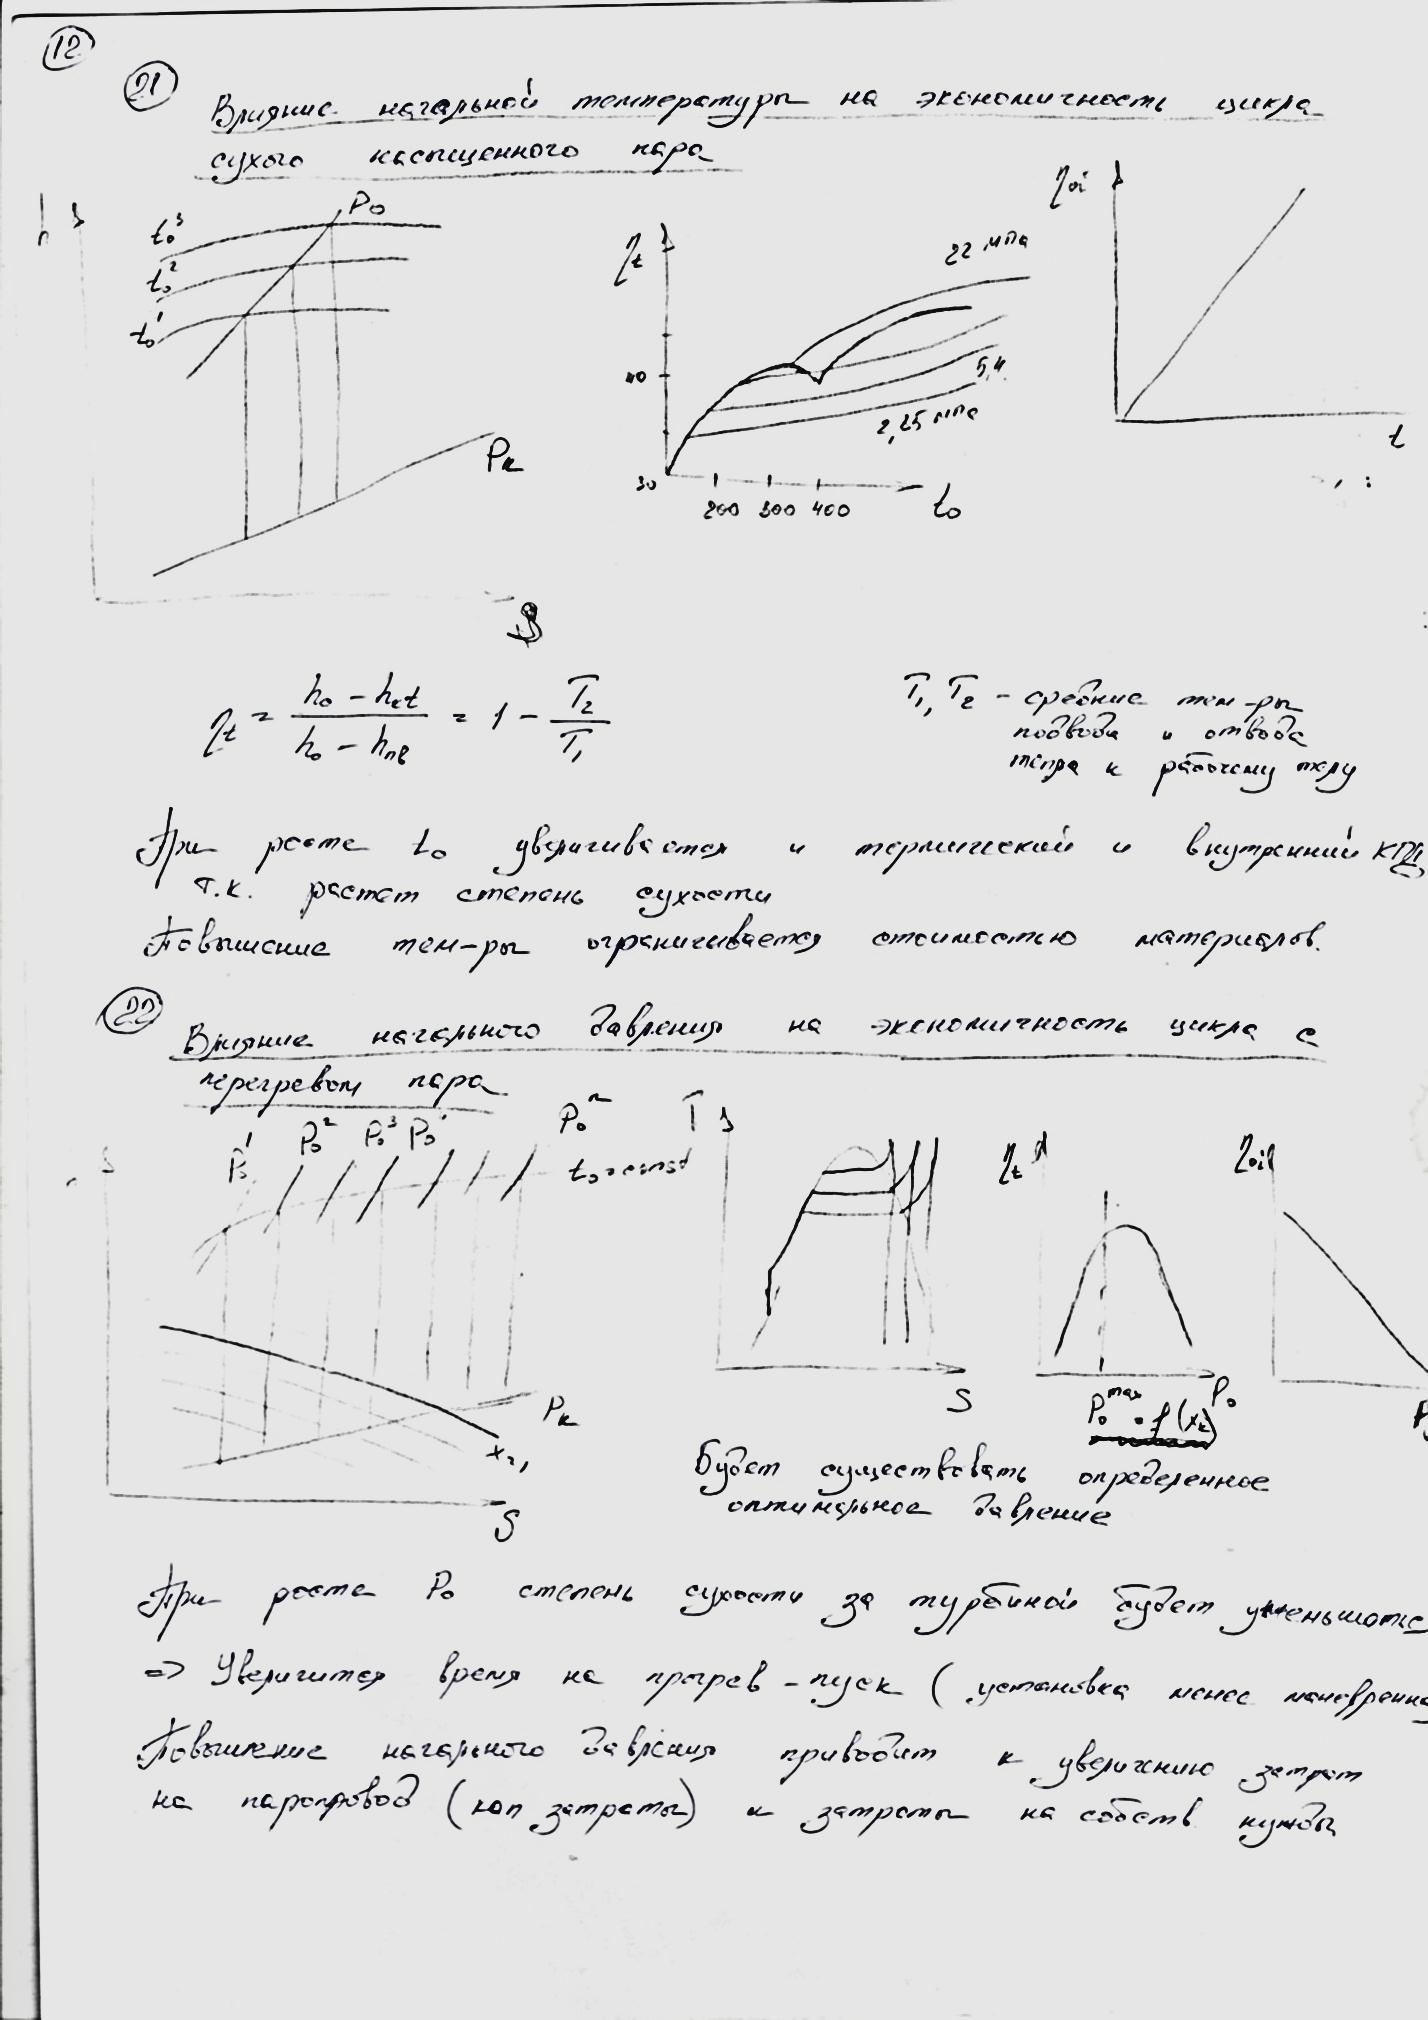 12
21
Влияние начальной температуры на экономичность цикла
сухого насыщенного пара
h
t₀³
t₀²
t₀¹
P₀
Pк
S
ηt
40
30
200 300 400
t₀
22 мпа
5,4
2,25 мпа
ηoi
t
ηt = (h₀ - hкt)/(h₀ - hпв) = 1 - T₂/T₁
T₁, T₂ - средние тем-ры
подвода и отвода
тепла к рабочему телу
При росте t₀ увеличивается и термический и внутренний КПД,
т.к. растет степень сухости
Повышение тем-ры ограничивается стоимостью материалов.
22
Влияние начального давления на экономичность цикла с
перегревом пара
P₀¹ P₀² P₀³ P₀ P₀ⁿ
t₀=const
Pк
S
T
S
ηt
P₀
P₀ᵐᵃˣ = f(xк)
ηoi
Будет существовать определенное
оптимальное давление
При росте P₀ степень сухости за турбиной будет уменьшатьс
=> Увеличится время на прогрев-пуск (установка менее маневренна
Повышение начального давления приводит к увеличению затрат
на паропровод (кап затраты) и затраты на собств нужды